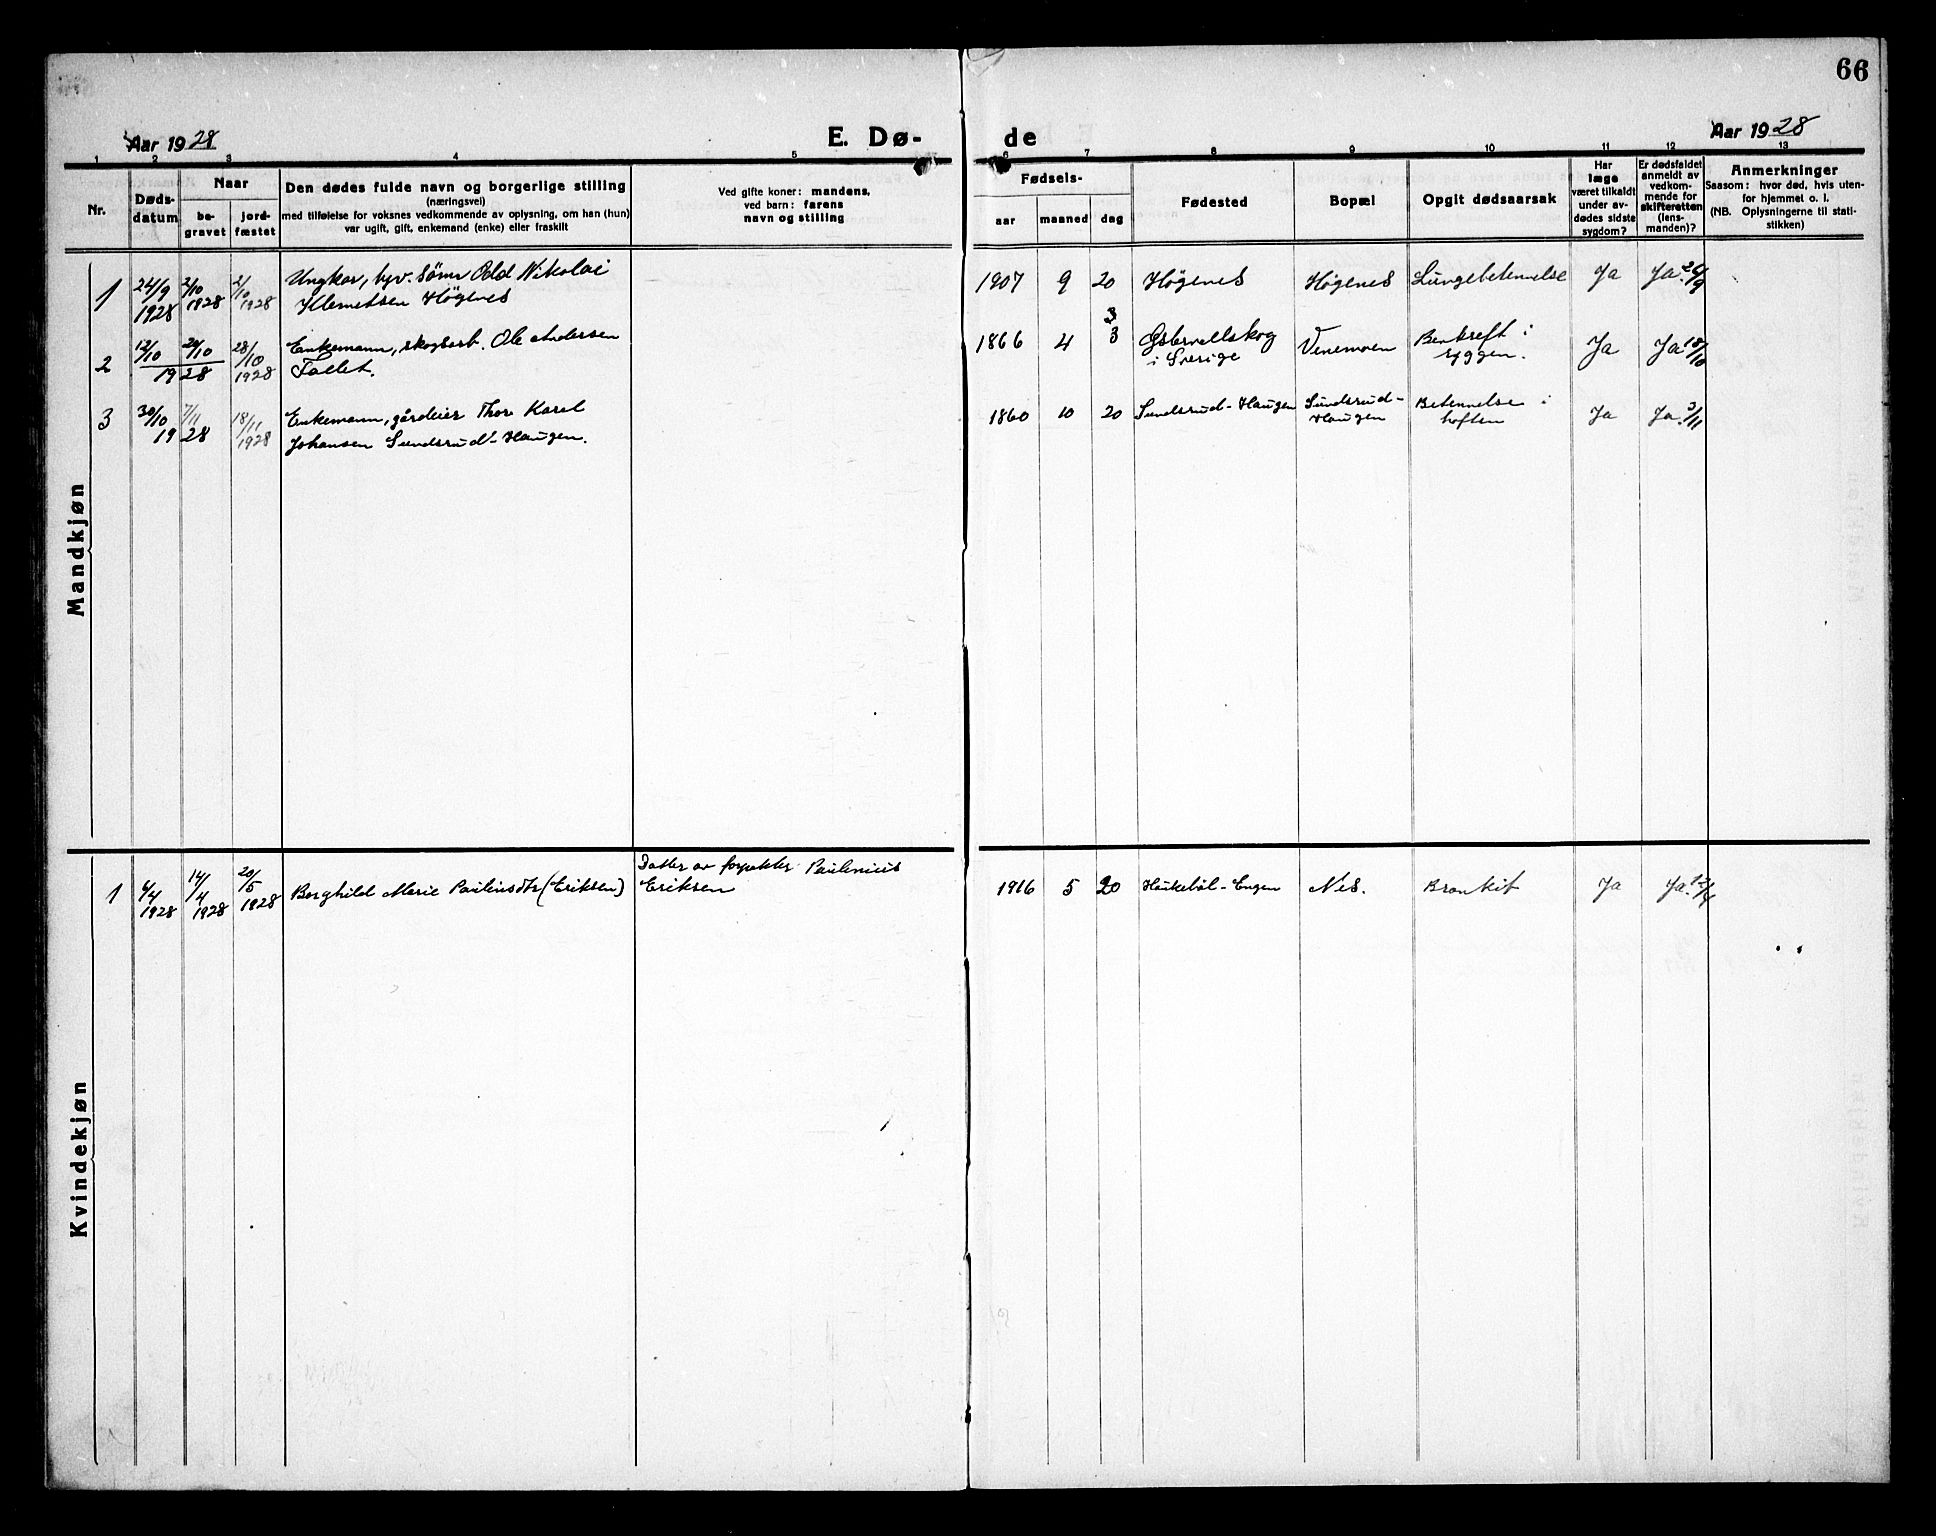 66
Aar 1928
E. Dø-
de
Aar 1928
1 2 3 4 5 6 7 8 9 10 11 12 13
Nr.
Døds-
datum
Naar
be-
gravet
jord-
fæstet
Den dødes fulde navn og borgerlige stilling
(næringsvei)
med tilføielse for voksnes vedkommende av oplysning, om han (hun)
var ugift, gift, enkemand (enke) eller fraskilt
Ved gifte koner: mandens,
ved barn: farens
navn og stilling
Fødsels-
aar maaned dag
Fødested
Bopæl
Opgit dødsaarsak
Har
læge
været tilkaldt
under av-
dødes sidste
sygdom?
Er dødsfaldet
anmeldt av
vedkom-
mende for
skifteretten
(lens-
manden)?
Anmerkninger
Saasom: hvor død, hvis uten-
for hjemmet o. l.
(NB. Oplysningerne til stati-
stikken)
Mandkjøn
1 24/9 1928 2/10 1928 2/10 1928
Ungkar, hjv. sönn Odd Nikolai
Klemetsen Högenes
1907 9 20 Högenes Högenes Lungebetennelse Ja Ja. 26/9
2 12/10 20/10 1928 28/10 1928
Enkemann, skogsarb. Ole Andersen
Fallet.
1866 4 3 3 Østervallskog
i Sverige
Venemoen
Benkreft i
ryggen.
Ja Ja 18/10
3 30/10 7/11 1928 18/11 1928
Enkemann, gårdeier Thor Karel
Johansen Sundsrud-Haugen.
1860 10 20 Sundsrud-Haugen
Sundsrud-
Haugen
Betennelse i
hoften
Ja Ja. 3/11
Kvindekjøn
1 6/4 1928 14/4 1928 20/5 1928
Borghild Marie Pauliusdtr (Eriksen)
Datter av forpakter Paulinius
Eriksen
1916 5 20 Haukeböl-Engen Nes. Bronkit Ja Ja. 12/4